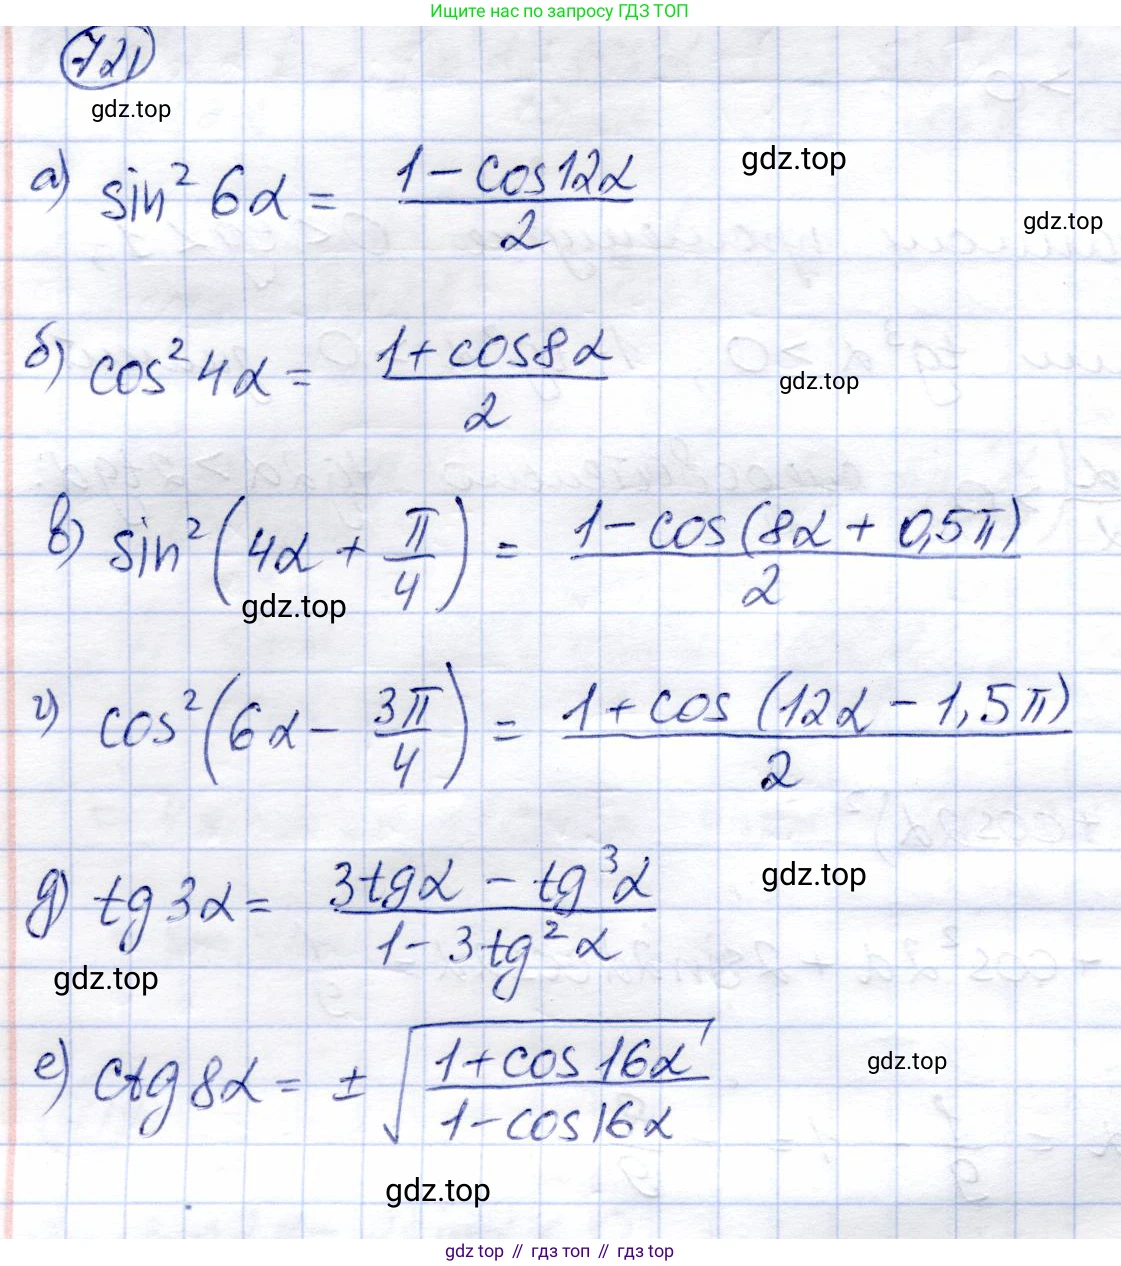 Ищите нас по запросу ГДЗ ТОП
721
gdz.top
а) sin² 6α = (1 - cos12α)/2
gdz.top
gdz.top
б) cos² 4α = (1 + cos8α)/2
gdz.top
в) sin² (4α + π/4) = (1 - cos(8α + 0,5π))/2
gdz.top
г) cos² (6α - 3π/4) = (1 + cos (12α - 1,5π))/2
д) tg 3α = (3tgα - tg³α)/(1 - 3tg²α)
gdz.top
gdz.top
е) ctg 8α = ± √((1 + cos 16α)/(1 - cos16α))
gdz.top
gdz.top
gdz top // гдз топ // гдз top